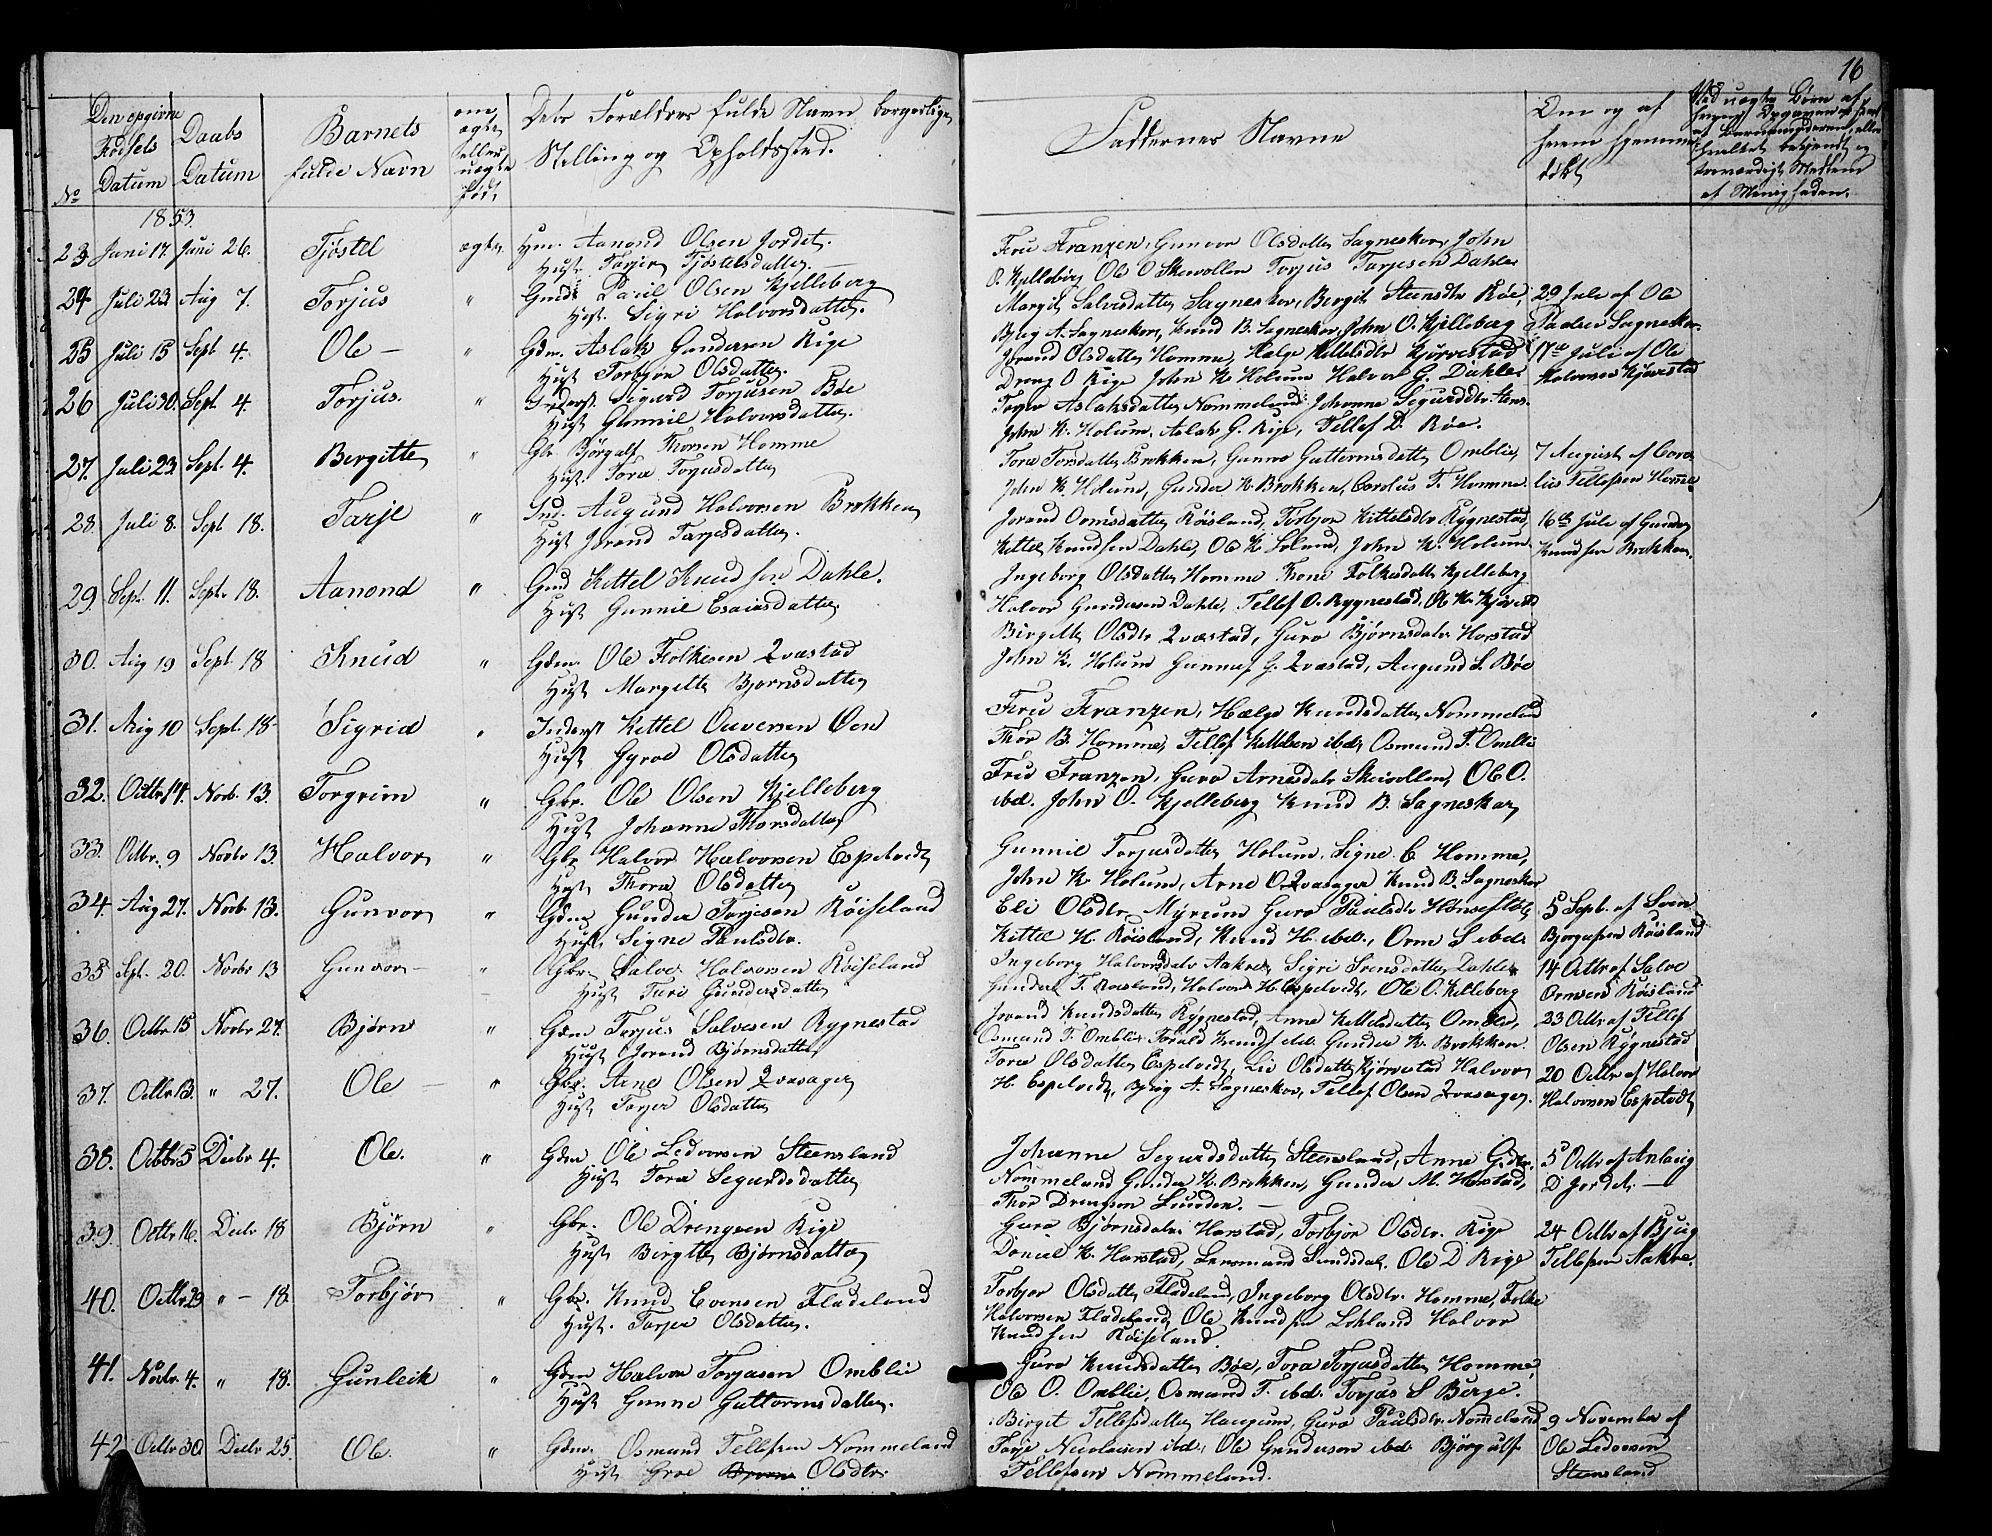 16
Den opgivne
Fødsels
Datum
Daabs
Datum
Barnets
fulde Navn
om
ægte
eller
uægte
født
Dets Forældres fulde Navn borgerlige
Stilling og Opholdssted.
Faddernes Navne
Om og af
hvem hjemme
døbt
No
1853.
23 Juni 17. Juni 26. Tjøstel ægte Hm. Aanond Olsen Jordet.
Hust. Tarjer Tjøstelsdatter
Fru Franzen, Gunvor Olsdatter Sagneskar, John
O. Kjelleberg Ole O Skewollen Torjus Tarjesen Dahle
24 Juli 23 Aug 7. Torjus " Gmd. Paul Olsen Kjelleberg
Hust. Sigri Halvorsdatter.
Margit Salvesdatter Sagneskar, Bergit Steensdtr Røe, 29 Juli af Ole
Bjug A. Sagneskar, Knud B. Sagneskar, John O. Kjelleberg Paulsen Sagneskar
25 Juli 15 Sept 4. Ole — " Gdm. Aslak Gundersen Rige
Hust Torbjør Olsdatter.
Jorand Olsdatter Homme, Hælge Kittelsdtr Kjørvestad 17de Juli af Ole
Dreng O Rige John K. Holum Halvor G. Dahle Halvorsen Kjørvestad
26 Juli 30. Sept. 4. Torjus. " Inderst. Sigurd Torjusen Bøe
Hust Gunnil Halvorsdatter.
Torjer Aslaksdatter Nommeland Johanne Segurddtr Stens.
John K. Holum, Aslak G. Rige, Tellef D. Røe.
27. Juli 23. Sept. 4. Bergitte " Gbr. Bjørgulf Thorsen Homme
Hust. Tora Torjusdatter
Tora Torsdatter Brokken, Gunne Guttormsdatter Omblie, 7 August af Coro
John K. Holum, Gunder K. Brokken, Carolus T. Homme lius Tellefsen Homme
28. Juli 8. Sept 18. Tarje " Ind. Augund Halvorsen Brokken
Hust Jorand Tarjesdatter.
Jorand Ormsdatter Røisland, Torbjør Kittelsdtr Rygnestad, 16de Juli af Gunder
Kittel Knudsen Dahle, Ole K. Holum, John K. Holum. Knudsen Brokken.
29 Sept. 11. Sept. 18. Aanond " Gmd Kittel Knudsen Dahle.
Hust Gunnil Esaiasdatter
Ingeborg Olsdatter Homme Tone Folkesdatter Kjelleberg
Halvor Gundersen Dahle, Tellef O. Rygnestad, Ole K. Kjørvest
30. Aug 19 Sept. 18 Knud " Gdm. Ole Folkesen Qvæstad
Hust Margitte Bjørnsdatter
Birgitte Olsdtr Qvæstad, Guro Bjørnsdatr Harstad
John K. Holum Gunnuf G. Qvæstad, Augund S. Bøe
31. Aug 10 Sept. 18 Sigrid " Inderst Kittel Ouversen Øen
Hust Gyroe Olsdatter
Fru Franzen, Hælge Knudsdatter Nommeland
Thor B. Homme, Tellef Kittelsen ibd. Osmund T. Omblie
32. Octbr 14. Novb. 13. Torgrim " Gbr. Ole Olsen Kjelleberg
Hust Johanne Thorsdatter
Fru Franzen, Guro Arnesdatr Skewollen, Ole O.
ibd. John O. Kjelleberg Knud B. Sagneskar
33. Octbr. 9 Novbr 13. Halvor " Gbr Halvor Halvorsen Espetvedt
Hust Thora Olsdatter
Gunnil Torjusdatter Holum, Signe C Homme,
John K. Holum, Arne O. Qvasager Knud B. Sagneskar
34. Aug 27. Novb. 13. Gunvor " Gdm Gunder Torjesen Røiseland
Hust. Signe Paulsdtr.
Eli Olsdtr Myrum Guro Paulsdtr Hønseflot 5 Sept. af Svein
Kittel H. Røisland, Knud H. ibd., Orm S ibd. Bjorgulsen Røisland
35 Spt. 20. Novbr 13 Gunvor — " Gbr. Salve Halvorsen Røiseland
Hust Turi Gundersdatter
Ingeborg Halvorsdatr Aakre, Sigri Svensdatter Dahle 14 Octbr af Salve
Gunder T. Røisland, Halvor H. Espetvedt, Ole O. Kelleberg Ormsen Røisland
36. Octbr. 15 Novbr 27. Bjørn " Gdm Torjus Salvesen Rygnestad
Hust Jorand Bjørnsdatter
Jorand Knudsdatter Rygnestad, Anne Kittelsdatter Omblie, 23 Octbr af Tellef
Osmund T. Omblie, Torald Knuds. ibd. Gunder K. Brokken. Olsen Rygnestad
37. Octbr 13. " 27. Ole — " Gbr. Arne Olsen Qvasager
Hust Tarjer Olsdatter
Tora Olsdatter Espetvedt, Liv Olsdatter Kjørvestad Halvor 20 Octbr af Halvor
H. Espetvedt, Bjug A. Sagneskar, Tellef Olsen Qvasager. Halvorsen Espetvedt
38. Octbr 5 Decbr 4. Ole. " Gdm Ole Ledvorsen Steensland
Hust Tora Segurdsdatter
Johanne Segurdsdatter Steensland, Anne G.dtr. 5 Octbr af Anlaug
Nommeland Gunder K. Brokken, Gunder M. Harstad, D Jordet. —
Thor Drengsen Lunden. —
39. Octbr 16. Decbr 18 Bjørn " Gbr. Ole Drengsen Rige
Hust Bergitte Bjørnsdatter
Guro Bjørnsdatr Harstad, Torbjør Olsdtr. Rige 24 Octbr af Bjug
Daniel K. Harstad, Lensmand Sundsdal, Ole D Rige Tellefsen Aakre.
40. Octbr. 29 " — 18. Torbjør " Gbr. Knud Evensen Fladeland
Hust. Tarjer Olsdatter.
Torbjør Olsdatter Fladeland, Ingeborg Olsdtr. Homme, Folke
Halvorsen Fladeland, Ole Knudsen Løhland Halvor
Knudsen Røiseland.
41. Novbr. 4. " 18. Gunleik " Gdm Halvor Torjusen Omblie
Hust Gunne Guttormsdatter.
Guro Knudsdatter Bøe, Tora Torjusdatter Homme,
Ole O. Omblie, Osmund T. ibd. Torjus S Berge.
42. Octbr 30. Decbr 25. Ole. " Gdm. Osmund Tellefsen Nommeland
Hust Groe Olsdtr.
Birgit Tellefsdatter Haugum, Guro Paulsdtr. Nommeland 9 November af
Tarje Nicolaisen ibd., Ole Gunderson ibd. Bjørgulf Ole Ledvorsen
Tellefsen Nommeland. Steensland